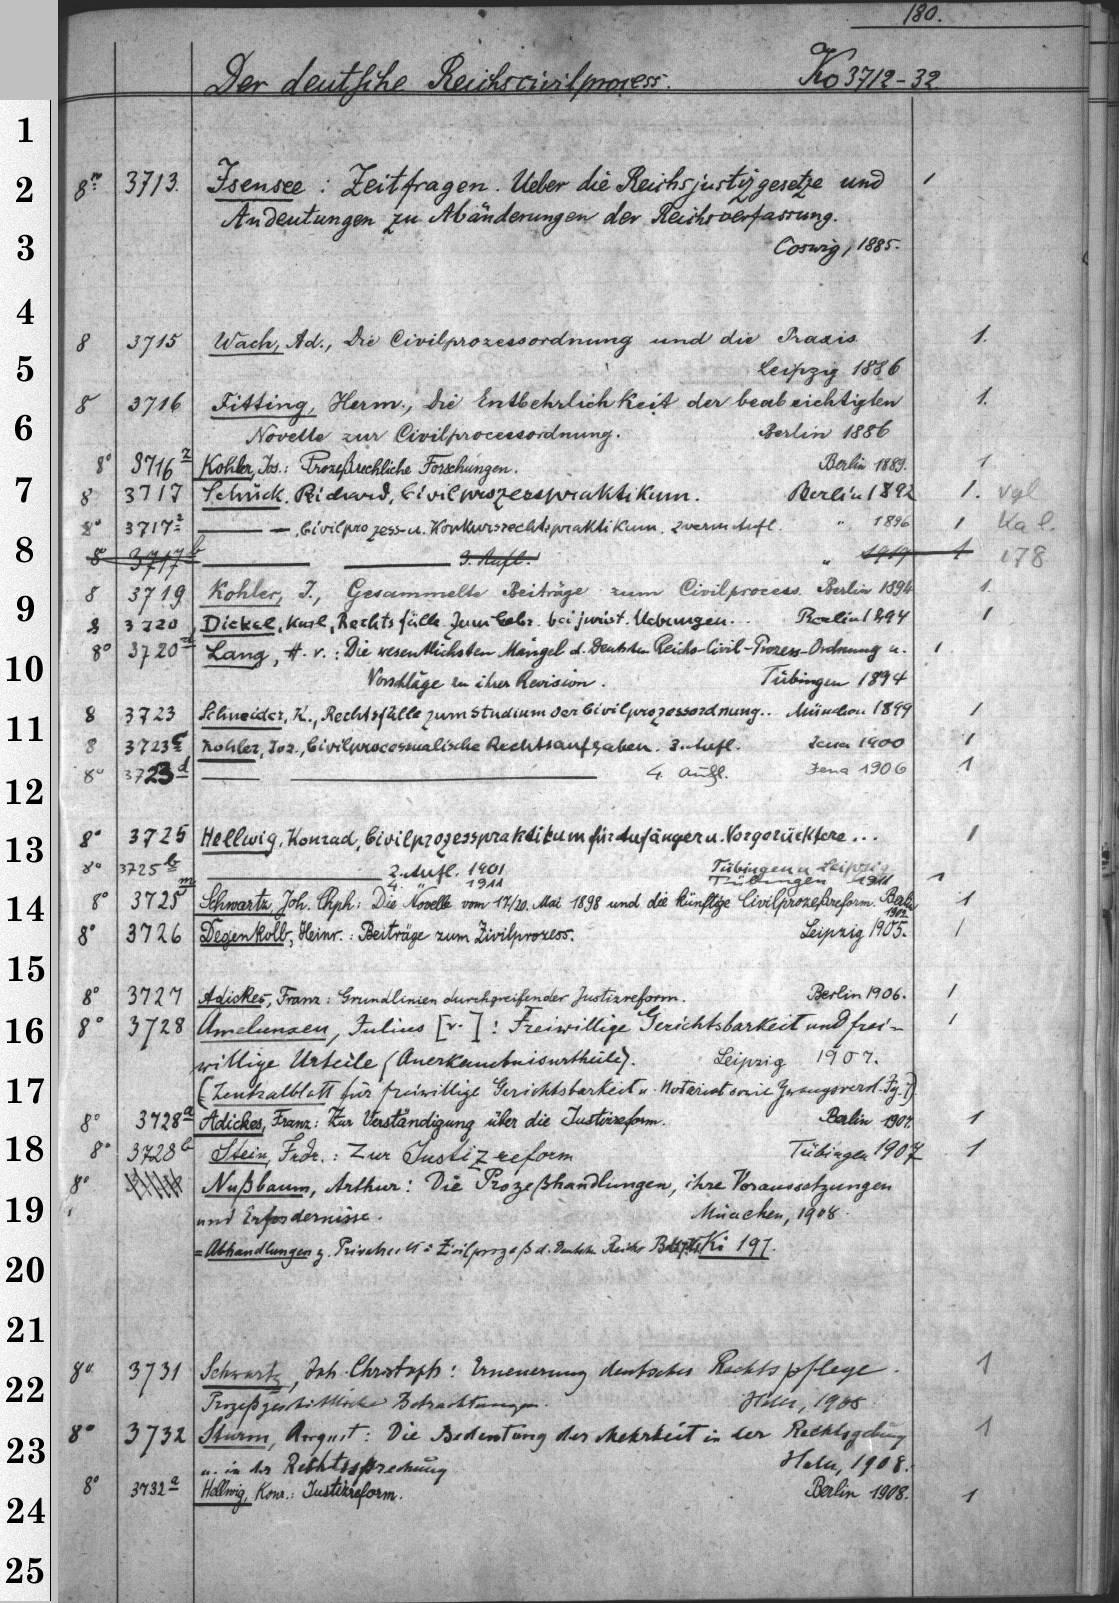 180.
Der deutsche Reichscivilprocess. Ko 3712-32.
1
2 8º 3713. Isensee: Zeitfragen. Ueber die Reichsjustizgesetze und 1
Andeutungen zu Abänderungen der Reichsverfassung.
3 Coswig, 1885.
4
8 3715 Wach, Ad., Die Civilprozessordnung und die Praxis 1.
5 Leipzig 1886
8 3716 Fitting, Herm., Die Entbehrlichkeit der beabsichtigten 1.
6 Novelle zur Civilprocessordnung. Berlin 1886
8º 3716 z Kohler, Jos.: Prozeßrechliche Forschungen. Berlin 1889. 1
7 8 3717 Schück, Richard, Civilprozesspraktikum. Berlin 1892 1. vgl
8º 3717 ² — — , Civilprozess- u. Konkursrechtspraktikum. Zweite Aufl. " 1896 1 Ka l.
8 8 3717 b — — 3. Aufl. " 1919 1 178
8 3719 Kohler, J., Gesammelte Beiträge zum Civilprocess. Berlin 1894 1.
9 8 3720 Dickel, Karl, Rechtsfälle. Zum Gebr. bei jurist. Uebungen... Berlin 1894 1
8º 3720 a Lang, A. v.: Die wesentlichsten Mängel d. Deutschen Reichs-Civil-Prozess-Ordnung u. 1.
10 Vorschläge zu ihrer Revision. Tübingen 1894
11 8 3723 Schneider, K., Rechtsfälle zum Studium der Civilprozessordnung.. München 1899 1
8 3723 c Kohler, Jos., Civilprocessualische Rechtsaufgaben. 2. Aufl. Jena 1900 1
8º 3723 d — — 4. Aufl. Jena 1906 1
12
13 8º 3725 Hellwig, Konrad, Civilprozesspraktikum für Anfänger u. Vorgerücktere... 1
8º 3725 b — 2. Aufl. 1901 Tübingen u. Leipzig
4. " 1911 Tübingen 1911 1
14 8º 3725 m Schwartz, Joh. Chph: Die Novelle vom 17/20. Mai 1898 und die künftige Civilprozeßreform. Berlin 1902. 1
8º 3726 Degenkolb, Heinr.: Beiträge zum Zivilprozess. Leipzig 1905. 1
15
8º 3727 Adickes, Franz: Grundlinien durchgreifender Justizreform. Berlin 1906. 1
16 8º 3728 Amelunxen, Julius [v.]: Freiwillige Gerichtsbarkeit und frei- 1
willige Urteile (Anerkenntnisurtheile). Leipzig 1907.
17 (= Zentralblatt für freiwillige Gerichtsbarkeit u. Notariat sowie Zwangsverst. Jg. 7)
8º 3728 a Adickes, Franz: Zur Verständigung über die Justizreform. Berlin 1907. 1
18 8º 3728 b Stein, Frdr.: Zur Justizreform Tübingen 1907 1
8º Nußbaum, Arthur: Die Prozeßhandlungen, ihre Voraussetzungen
19 und Erfordernisse. München, 1908.
= Abhandlungen z. Privatrecht u. Zivilprozeß d. Deutsch. Reichs Ki 197.
20
21
8º 3731 Schwartz, Joh. Christoph: Erneuerung deutscher Rechtspflege. 1
22 Prozeßgeschichtliche Betrachtungen. Halle, 1908
8º 3732 Sturm, August: Die Bedeutung der Mehrheit in der Rechtsgebung 1
23 u. in der Rechtssprechung Halle, 1908.
8º 3732 a Hellwig, Konr.: Justizreform. Berlin 1908. 1
24
25